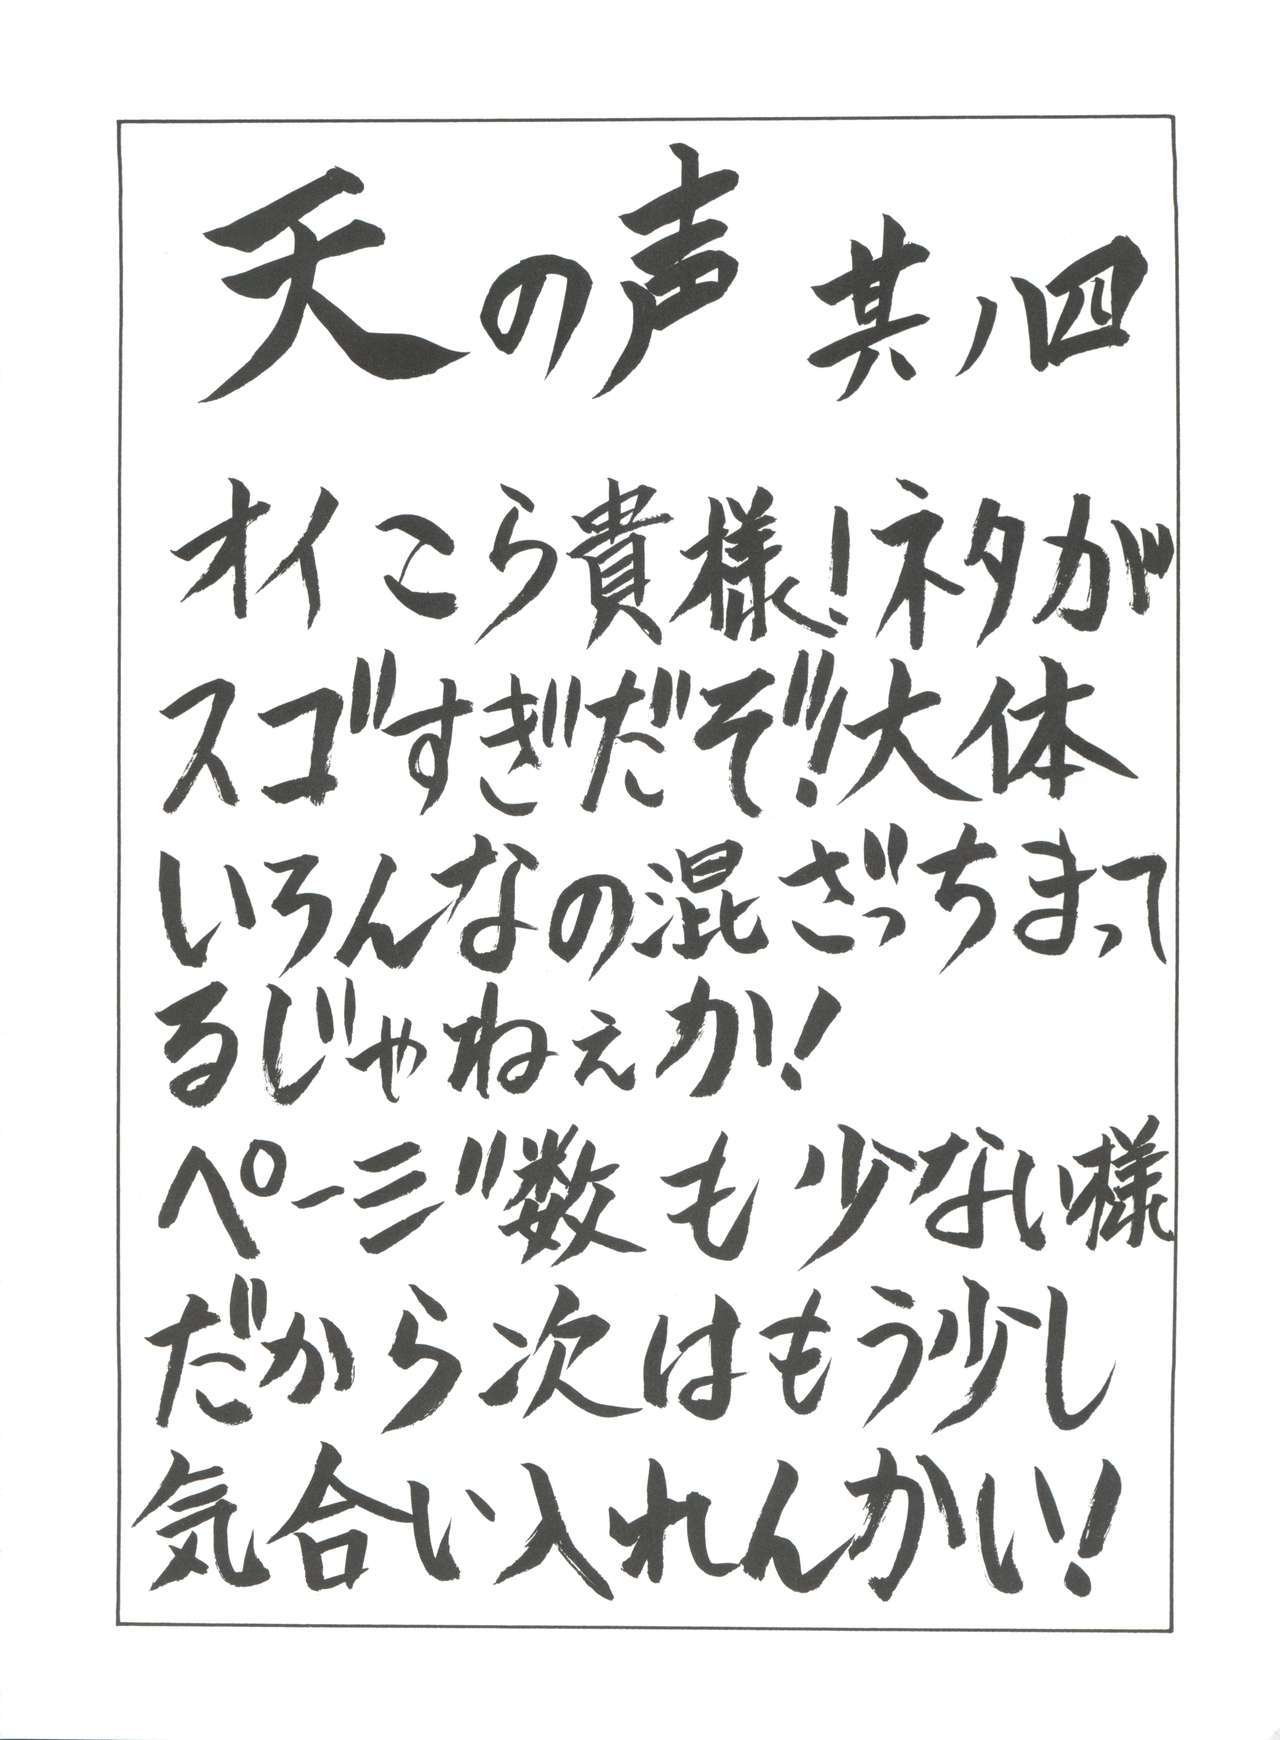 天の声 其ノ四
オイこら貴様!ネタが
スゴすぎだぞ!大体
いろんなの混ざっちまって
るじゃねぇか!
ページ数も少ない様
だから次はもう少し
気合い入れんかい!